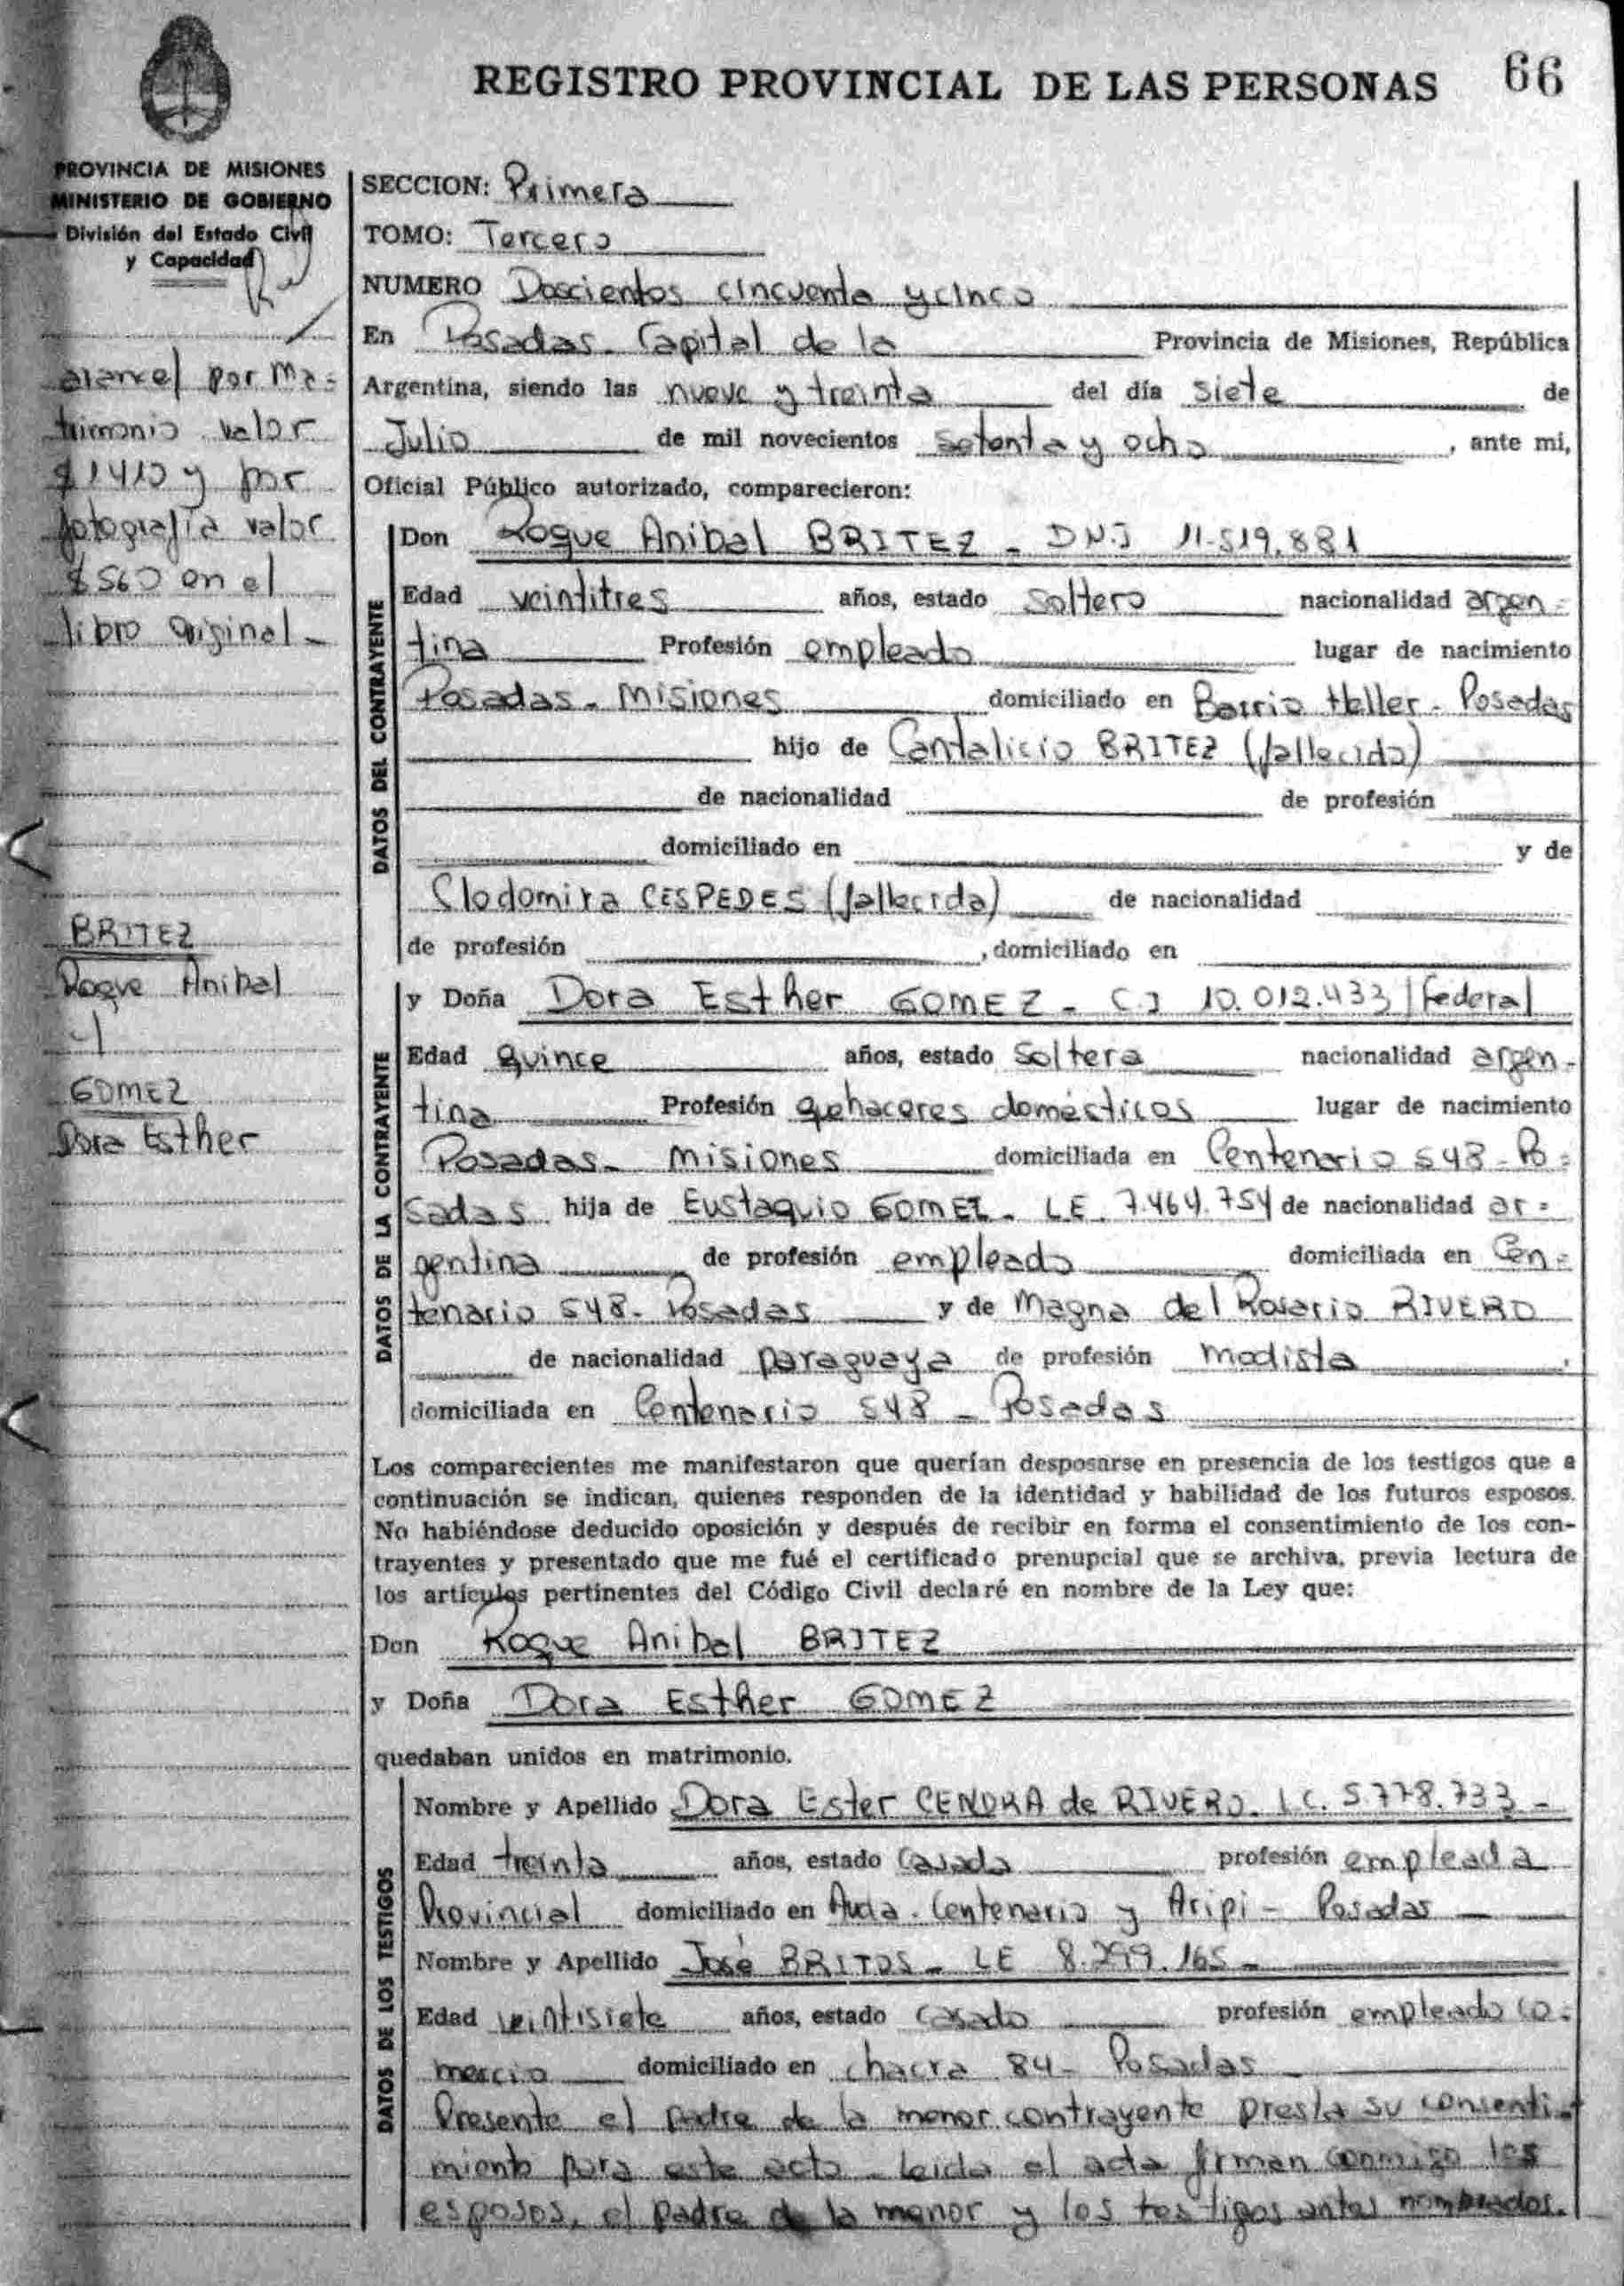 REGISTRO PROVINCIAL DE LAS PERSONAS 66
PROVINCIA DE MISIONES
MINISTERIO DE GOBIERNO
División del Estado Civil
y Capacidad
arancel por ma=
trimonio valor
$1410 y por
fotografía valor
$560 en el
libro original -
BRITEZ
Roque Anibal
y
GOMEZ
Dora Esther
SECCION: Primera
TOMO: Tercero
NUMERO Doscientos cincuenta y cinco
En Posadas. Capital de la Provincia de Misiones, República
Argentina, siendo las nueve y treinta del día siete de
Julio de mil novecientos setenta y ocho, ante mi,
Oficial Público autorizado, comparecieron:
DATOS DEL CONTRAYENTE
Don Roque Anibal BRITEZ - DNI 11.519.881
Edad veintitres años, estado soltero nacionalidad argen=
tina Profesión empleado lugar de nacimiento
Posadas - Misiones domiciliado en Barrio Heller - Posadas
hijo de Cantalicio BRITEZ (fallecido)
de nacionalidad de profesión
domiciliado en y de
Clodomira CESPEDES (fallecida) de nacionalidad
de profesión , domiciliado en
DATOS DE LA CONTRAYENTE
y Doña Dora Esther GOMEZ - C.I 10.012.433 | Federal
Edad Quince años, estado Soltera nacionalidad argen-
tina Profesión quehaceres domésticos lugar de nacimiento
Posadas - Misiones domiciliada en Centenario 548 - Po=
sadas hija de Eustaquio GOMEZ - LE. 7.464.754 de nacionalidad ar=
gentina de profesión empleado domiciliada en Cen=
tenario 548 - Posadas y de Magna del Rosario RIVERO
de nacionalidad paraguaya de profesión modista
domiciliada en Centenario 548 - Posadas
Los comparecientes me manifestaron que querían desposarse en presencia de los testigos que a
continuación se indican, quienes responden de la identidad y habilidad de los futuros esposos.
No habiéndose deducido oposición y después de recibir en forma el consentimiento de los con-
trayentes y presentado que me fué el certificado prenupcial que se archiva, previa lectura de
los artículos pertinentes del Código Civil declaré en nombre de la Ley que:
Don Roque Anibal BRITEZ
y Doña Dora Esther GOMEZ
quedaban unidos en matrimonio.
DATOS DE LOS TESTIGOS
Nombre y Apellido Dora Ester CENDRA de RIVERO. L.C. 5.778.733 -
Edad treinta años, estado casada profesión empleada
Provincial domiciliado en Avda. Centenario y Aripi - Posadas
Nombre y Apellido José BRITOS - LE 8.299.165 -
Edad veintisiete años, estado casado profesión empleado co=
mercio domiciliado en chacra 84 - Posadas
Presente el padre de la menor contrayente presta su consenti-
miento para este acto - Leida el acta firman conmigo los
esposos, el padre de la menor y los testigos antes nombrados.